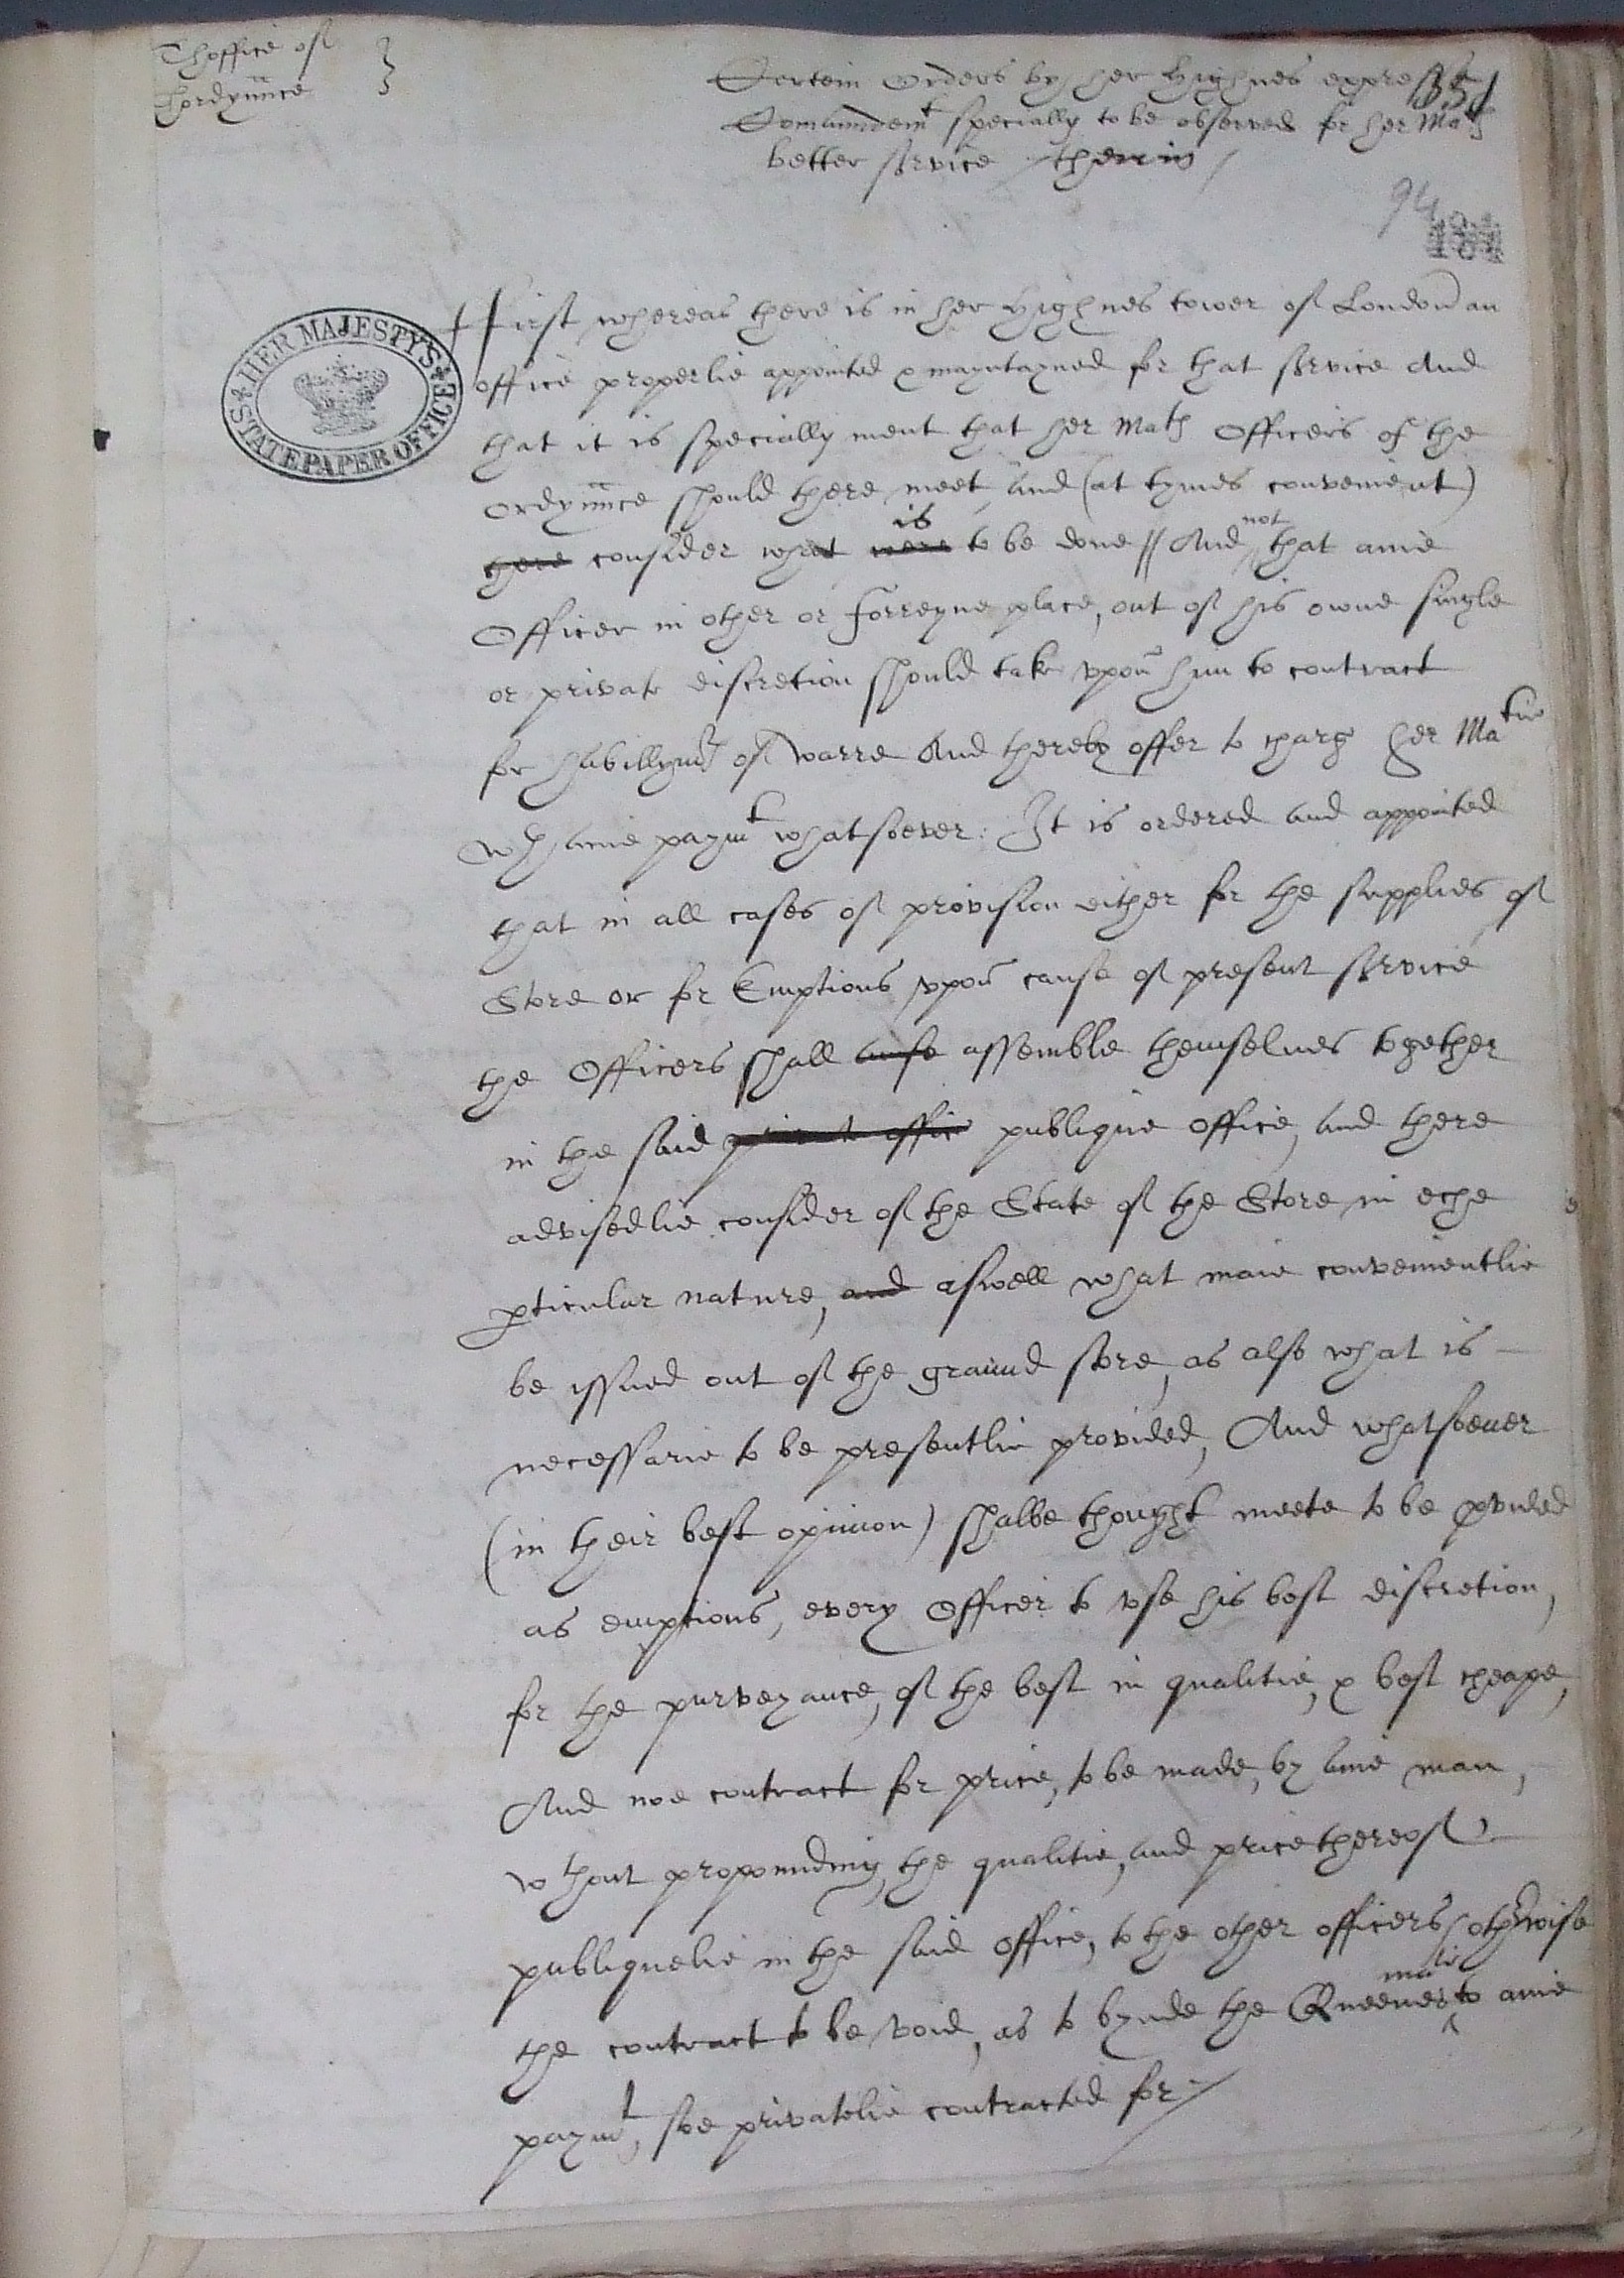 Thoffice of
Thordynnce
Certein Orders by her Highnes expresse
Comaundemt specially to be observed for her Mats
better service therin /
351
94
181
HER MAJESTY'S
STATE PAPER OFFICE
First whereas there is in her Highnes tower of London an
office properlie appointed & mayntayned for that service And
that it is specially ment that her Mats Officers of the
Ordynnce should there meet, and (at tymes convenient)
here consider what were is to be done // And not that anie
Officer in other or forreyne place, out of his owne single
or private discretion should take vpon him to contract
for habillymts of warre And thereby offer to charge her Matie
wth anie paymt whatsoever: It is ordered and appointed
that in all cases of provision either for the supplies of
Store or for Emptions vpon cause of present service
the Officers shall assemble themselues together
in the said privat office publique office, and there
advisedlie consider of the State of the Store in eche
pticular nature, and aswell what maie convenientlie
be yssued out of the graund store, as also what is
necessarie to be presentlie provided, And whatsoeuer
(in their best opinion) shalbe thought meete to be pvided
as emptions, every Officer to vse his best discretion,
for the purveyance, of the best in qualitie, & best cheape,
And noe contract for price, to be made, by anie man,
wthout propounding the qualitie, and price thereof
publiquelie in the said office, to the other officers / otherwise
the contract to be void, as to bynde the Queenes matie to anie
paymt, soe privatelie contracted for /